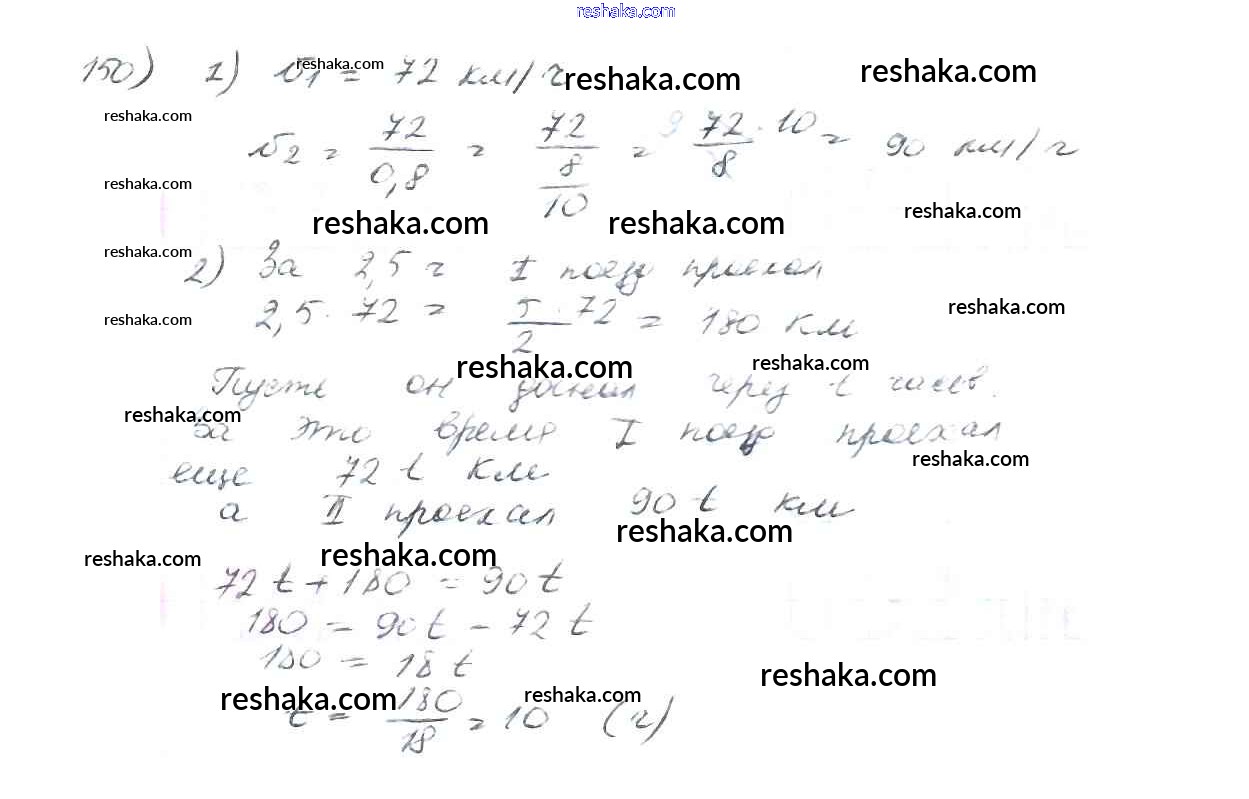 reshaka.com
150) 1) v1 = 72 км/ч
reshaka.com reshaka.com reshaka.com
reshaka.com
v2 = 72/0,8 = 72/(8/10) = 9 72·10/8 = 90 км/ч
reshaka.com
reshaka.com reshaka.com reshaka.com
reshaka.com
2) За 2,5 ч I поезд проехал
2,5 · 72 = 5·72/2 = 180 км
reshaka.com reshaka.com
reshaka.com reshaka.com
Пусть он догнал через t часов.
reshaka.com
За это время I поезд проехал
reshaka.com
еще 72 t км
а II проехал 90 t км
reshaka.com
reshaka.com reshaka.com
72 t + 180 = 90 t
180 = 90 t - 72 t
180 = 18 t
reshaka.com reshaka.com reshaka.com
t = 180/18 = 10 (ч)